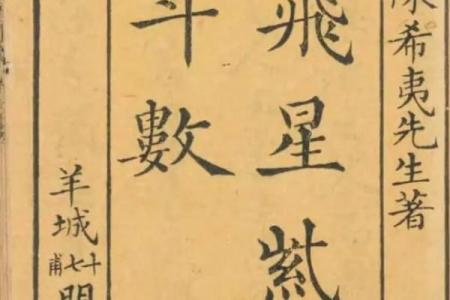 陳希夷先生著
飛星紫
斗數
羊城
十七甫